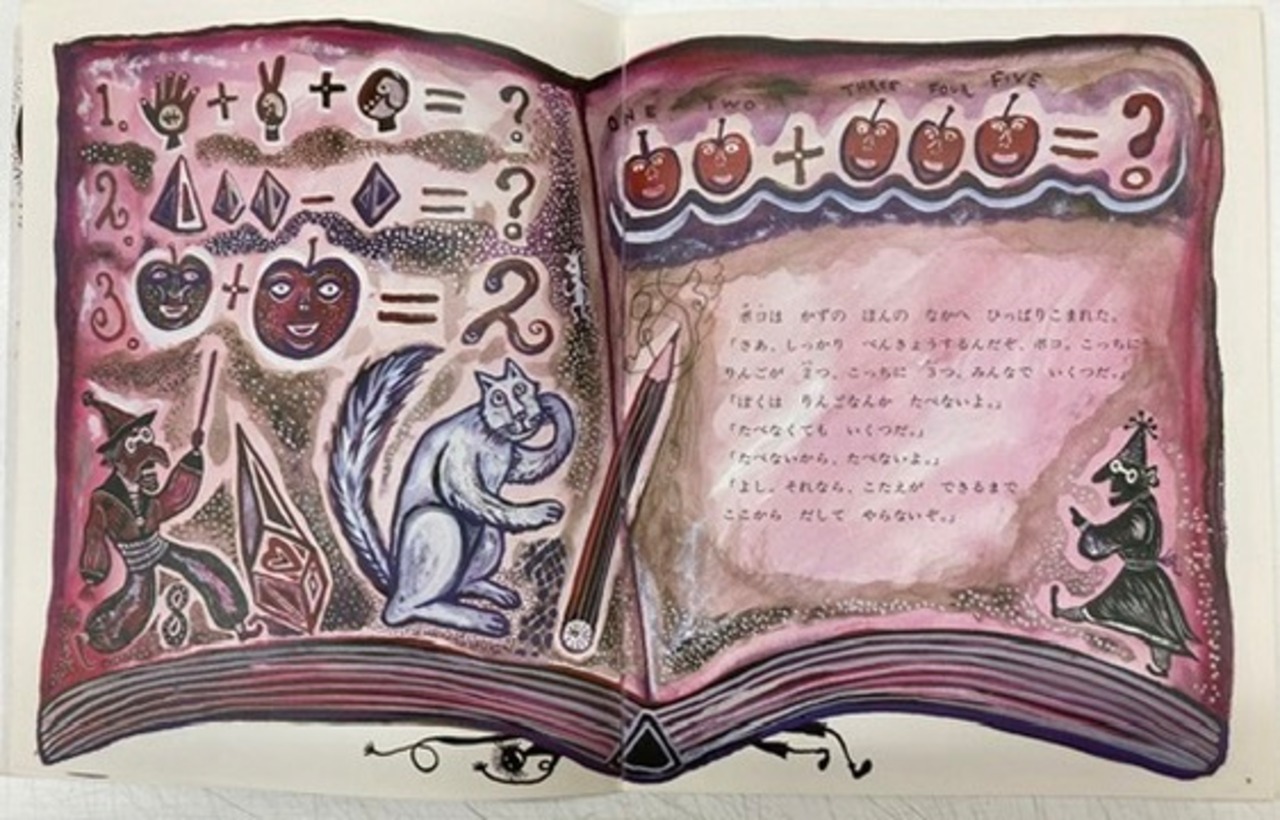 1. + + = ?
2. - = ?
3. + = 2
8
ONE TWO THREE FOUR FIVE
+ = ?
ポコは かずの ほんの なかへ ひっぱりこまれた。
「さあ、しっかり べんきょうするんだぞ、ポコ。こっちに
りんごが 2つ、こっちに 3つ、みんなで いくつだ。」
「ぼくは りんごなんか たべないよ。」
「たべなくても いくつだ。」
「たべないから、たべないよ。」
「よし。それなら、こたえが できるまで
ここから だして やらないぞ。」